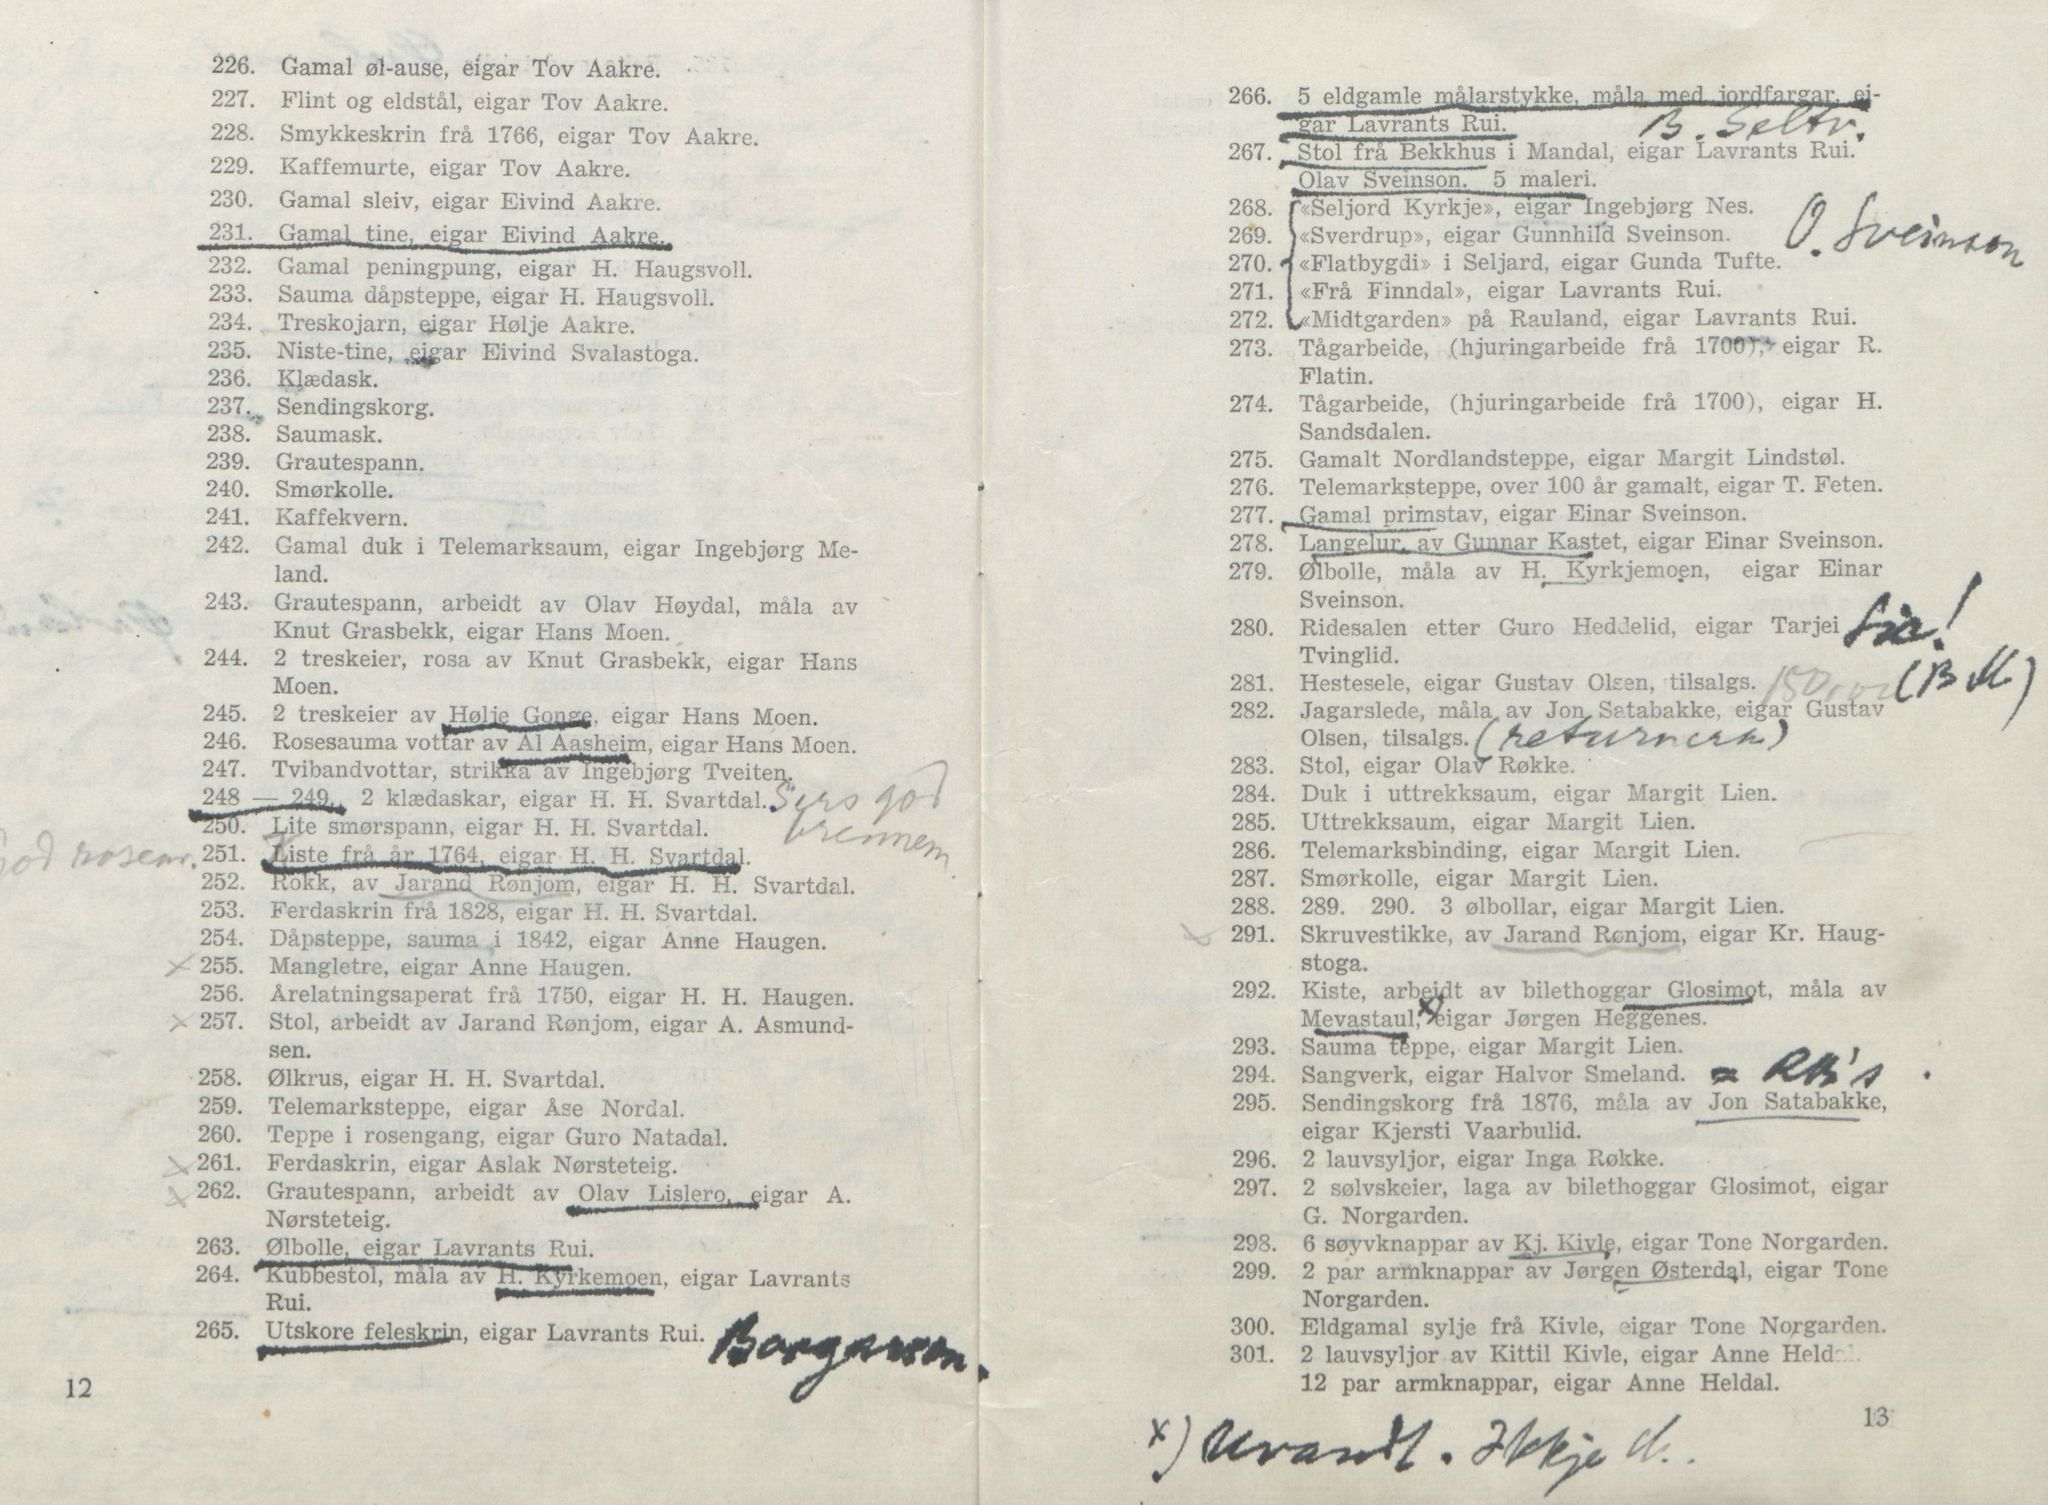 226. Gamal øl-ause, eigar Tov Aakre.
227. Flint og eldstål, eigar Tov Aakre.
228. Smykkeskrin frå 1766, eigar Tov Aakre.
229. Kaffemurte, eigar Tov Aakre.
230. Gamal sleiv, eigar Eivind Aakre.
231. Gamal tine, eigar Eivind Aakre.
232. Gamal peningpung, eigar H. Haugsvoll.
233. Sauma dåpsteppe, eigar H. Haugsvoll.
234. Treskojarn, eigar Hølje Aakre.
235. Niste-tine, eigar Eivind Svalastoga.
236. Klædask.
237. Sendingskorg.
238. Saumask.
239. Grautespann.
240. Smørkolle.
241. Kaffekvern.
242. Gamal duk i Telemarksaum, eigar Ingebjørg Me-
land.
243. Grautespann, arbeidt av Olav Høydal, måla av
Knut Grasbekk, eigar Hans Moen.
244. 2 treskeier, rosa av Knut Grasbekk, eigar Hans
Moen.
245. 2 treskeier av Hølje Gonge, eigar Hans Moen.
246. Rosesauma vottar av Al Aasheim, eigar Hans Moen.
247. Tvibandvottar, strikka av Ingebjørg Tveiten.
248 — 249. 2 klædaskar, eigar H. H. Svartdal. Sers god
brennem
250. Lite smørspann, eigar H. H. Svartdal.
God rosem. 251. Liste frå år 1764, eigar H. H. Svartdal.
252. Rokk, av Jarand Rønjom, eigar H. H. Svartdal.
253. Ferdaskrin frå 1828, eigar H. H. Svartdal.
254. Dåpsteppe, sauma i 1842, eigar Anne Haugen.
x 255. Mangletre, eigar Anne Haugen.
256. Årelatningsaperat frå 1750, eigar H. H. Haugen.
x 257. Stol, arbeidt av Jarand Rønjom, eigar A. Asmund-
sen.
258. Ølkrus, eigar H. H. Svartdal.
259. Telemarksteppe, eigar Åse Nordal.
260. Teppe i rosengang, eigar Guro Natadal.
x 261. Ferdaskrin, eigar Aslak Nørsteteig.
x 262. Grautespann, arbeidt av Olav Lislero, eigar A.
Nørsteteig.
263. Ølbolle, eigar Lavrants Rui.
264. Kubbestol, måla av H. Kyrkemoen, eigar Lavrants
Rui.
265. Utskore feleskrin, eigar Lavrants Rui. Borgarson.
12
266. 5 eldgamle målarstykke, måla med jordfargar, ei-
gar Lavrants Rui. B. Seltv.
267. Stol frå Bekkhus i Mandal, eigar Lavrants Rui.
Olav Sveinson. 5 maleri.
268. «Seljord Kyrkje», eigar Ingebjørg Nes.
269. «Sverdrup», eigar Gunnhild Sveinson. O. Sveinson
270. «Flatbygdi» i Seljard, eigar Gunda Tufte.
271. «Frå Finndal», eigar Lavrants Rui.
272. «Midtgarden» på Rauland, eigar Lavrants Rui.
273. Tågarbeide, (hjuringarbeide frå 1700), eigar R.
Flatin.
274. Tågarbeide, (hjuringarbeide frå 1700), eigar H.
Sandsdalen.
275. Gamalt Nordlandsteppe, eigar Margit Lindstøl.
276. Telemarksteppe, over 100 år gamalt, eigar T. Feten.
277. Gamal primstav, eigar Einar Sveinson.
278. Langelur, av Gunnar Kastet, eigar Einar Sveinson.
279. Ølbolle, måla av H. Kyrkjemoen, eigar Einar
Sveinson.
280. Ridesalen etter Guro Heddelid, eigar Tarjei Sic!
Tvinglid.
281. Hestesele, eigar Gustav Olsen, tilsalgs. 150 (B M.)
282. Jagarslede, måla av Jon Satabakke, eigar Gustav
Olsen, tilsalgs.
283. Stol, eigar Olav Røkke.
284. Duk i uttrekksaum, eigar Margit Lien.
285. Uttrekksaum, eigar Margit Lien.
286. Telemarksbinding, eigar Margit Lien.
287. Smørkolle, eigar Margit Lien.
288. 289. 290. 3 ølbollar, eigar Margit Lien.
x 291. Skruvestikke, av Jarand Rønjom, eigar Kr. Haug-
stoga.
292. Kiste, arbeidt av bilethoggar Glosimot, måla av
Mevastaul, x) eigar Jørgen Heggenes.
293. Sauma teppe, eigar Margit Lien.
294. Sangverk, eigar Halvor Smeland.
295. Sendingskorg frå 1876, måla av Jon Satabakke,
eigar Kjersti Vaarbulid.
296. 2 lauvsyljor, eigar Inga Røkke.
297. 2 sølvskeier, laga av bilethoggar Glosimot, eigar
G. Norgarden.
298. 6 søyvknappar av Kj. Kivle, eigar Tone Norgarden.
299. 2 par armknappar av Jørgen Østerdal, eigar Tone
Norgarden.
300. Eldgamal sylje frå Kivle, eigar Tone Norgarden.
301. 2 lauvsyljor av Kittil Kivle, eigar Anne Heldal.
12 par armknappar, eigar Anne Heldal.
13
x) Uvandt. Ikkje M.